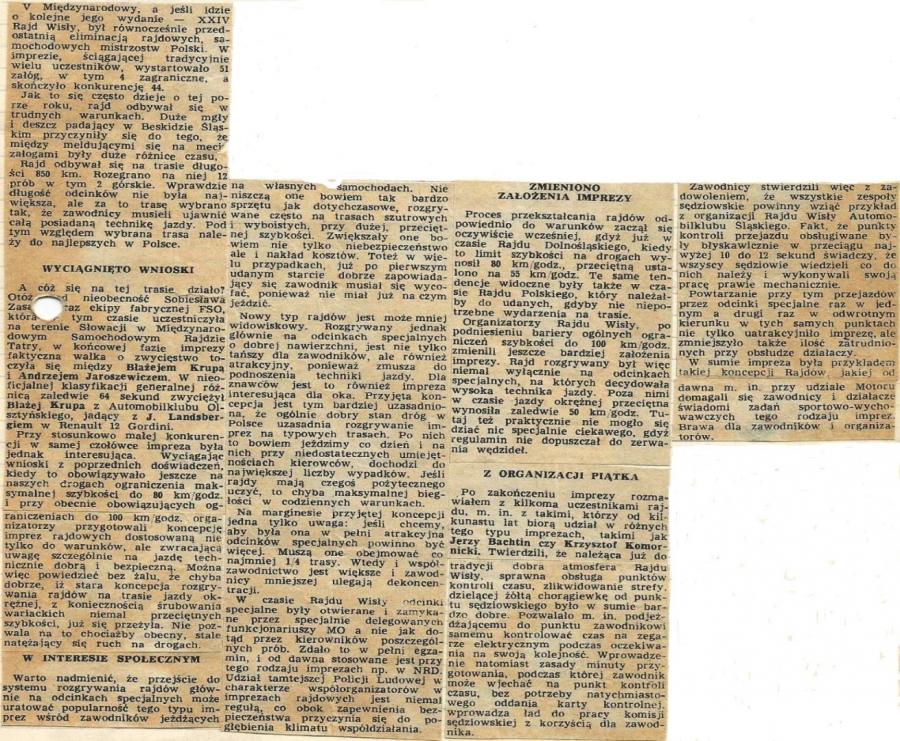 V Międzynarodowy, a jeśli idzie
o kolejne jego wydanie — XXIV
Rajd Wisły, był równocześnie przed-
ostatnią eliminacją rajdowych, sa-
mochodowych mistrzostw Polski. W
imprezie, ściągającej tradycyjnie
wielu uczestników, wystartowało 51
załóg, w tym 4 zagraniczne, a
skończyło konkurencję 44.
Jak to się często dzieje o tej po-
rze roku, rajd odbywał się w
trudnych warunkach. Duże mgły
i deszcz padający w Beskidzie Ślą-
skim przyczyniły się do tego, że
między meldującymi się na mecie
załogami były duże różnice czasu.
Rajd odbywał się na trasie długo-
ści 850 km. Rozegrano na niej 12
prób w tym 2 górskie. Wprawdzie
długość odcinków nie była naj-
większa, ale za to trasę wybrano
tak, że zawodnicy musieli ujawnić
całą posiadaną technikę jazdy. Pod
tym względem wybrana trasa nale-
ży do najlepszych w Polsce.
WYCIĄGNIĘTO WNIOSKI
A cóż się na tej trasie działo?
Otóż nieobecność Sobiesława
Zasa raz ekipy fabrycznej FSO,
któr tym czasie uczestniczyła
na terenie Słowacji w Międzynaro-
dowym Samochodowym Rajdzie
Tatry, w końcowej fazie imprezy
faktyczna walka o zwycięstwo to-
czyła się między Błażejem Krupą
i Andrzejem Jaroszewiczem. W nie-
oficjalnej klasyfikacji generalnej róż-
nicą zaledwie 64 sekund zwyciężył
Błażej Krupa z Automobilklubu Ol-
sztyńskiego, jadący z J. Landsber-
giem w Renault 12 Gordini.
Przy stosunkowo małej konkuren-
cji w samej czołówce impreza była
jednak interesująca. Wyciągając
wnioski z poprzednich doświadczeń,
kiedy to obowiązywało jeszcze na
naszych drogach ograniczenia mak-
symalnej szybkości do 80 km/godz.
i przy obecnie obowiązujących og-
raniczeniach do 100 km/godz. orga-
nizatorzy przygotowali koncepcję
imprez rajdowych dostosowaną nie
tylko do warunków, ale zwracającą
uwagę szczególnie na jazdę tech-
nicznie dobrą i bezpieczną. Można
więc powiedzieć bez żalu, że chyba
dobrze, iż stara koncepcja rozgry-
wania rajdów na trasie jazdy ok-
rężnej, z koniecznością śrubowania
wariackich niemal przeciętnych
szybkości, już się przeżyła. Nie poz-
wala na to chociażby obecny, stale
natężający się ruch na drogach.
W INTERESIE SPOŁECZNYM
Warto nadmienić, że przejście do
systemu rozgrywania rajdów głów-
nie na odcinkach specjalnych może
uratować popularność tego typu im-
prez wśród zawodników jeżdżących
na własnych samochodach. Nie
niszczą one bowiem tak bardzo
sprzętu jak dotychczasowe, rozgry-
wane często na trasach szutrowych
i wyboistych, przy dużej, przecięt-
nej szybkości. Zwiększały one bo-
wiem nie tylko niebezpieczeństwo
ale i nakład kosztów. Toteż w wie-
lu przypadkach, już po pierwszym
udanym starcie dobrze zapowiada-
jący się zawodnik musiał się wyco-
fać, ponieważ nie miał już na czym
jeździć.
Nowy typ rajdów jest może mniej
widowiskowy. Rozgrywany jednak
głównie na odcinkach specjalnych
o dobrej nawierzchni, jest nie tylko
tańszy dla zawodników, ale również
atrakcyjny, ponieważ zmusza do
podnoszenia techniki jazdy. Dla
znawców jest to również impreza
interesująca dla oka. Przyjęta kon-
cepcja jest tym bardziej uzasadnio-
na, że ogólnie dobry stan dróg w
Polsce uzasadnia rozgrywanie im-
prez na typowych trasach. Po nich
to bowiem jeździmy co dzień i na
nich przy niedostatecznych umiejęt-
nościach kierowców, dochodzi do
największej liczby wypadków. Jeśli
rajdy mają czegoś pożytecznego
uczyć, to chyba maksymalnej bieg-
łości w codziennych warunkach.
Na marginesie przyjętej koncepcji
jedna tylko uwaga: jeśli chcemy,
aby była ona w pełni atrakcyjna
odcinków specjalnych powinno być
więcej. Muszą one obejmować co
najmniej 1/4 trasy. Wtedy i współ-
zawodnictwo jest większe i zawod-
nicy mniejszej ulegają dekoncen-
tracji.
W czasie Rajdu Wisły odcinki
specjalne były otwierane i zamyka-
ne przez specjalnie delegowanych
funkcjonariuszy MO a nie jak do-
tąd przez kierowników poszczegól-
nych prób. Zdało to w pełni egza-
min, i od dawna stosowane jest przy
tego rodzaju imprezach np. w NRD.
Udział tamtejszej Policji Ludowej w
charakterze współorganizatorów w
imprezach rajdowych jest niemal
regułą, co obok zapewnienia bez-
pieczeństwa przyczynia się do po-
głębienia klimatu współdziałania.
ZMIENIONO
ZAŁOŻENIA IMPREZY
Proces przekształcania rajdów od-
powiednio do warunków zaczął się
oczywiście wcześniej, gdyż już w
czasie Rajdu Dolnośląskiego, kiedy
to limit szybkości na drogach wy-
nosił 80 km/godz., przeciętną usta-
lono na 55 km/godz. Te same ten-
dencje widoczne były także w cza-
sie Rajdu Polskiego, który należał-
by do udanych, gdyby nie niepo-
trzebne wydarzenia na trasie.
Organizatorzy Rajdu Wisły, po
podniesieniu bariery ogólnych ogra-
niczeń szybkości do 100 km/godz.
zmienili jeszcze bardziej założenia
imprezy. Rajd rozgrywany był więc
niemal wyłącznie na odcinkach
specjalnych, na których decydowała
wysoka technika jazdy. Poza nimi
w czasie jazdy okrężnej przeciętna
wynosiła zaledwie 50 km/godz. Tu-
taj też praktycznie nie mogło się
dziać nic specjalnie ciekawego, gdyż
regulamin nie dopuszczał do zerwa-
nia wędzideł.
Z ORGANIZACJI PIĄTKA
Po zakończeniu imprezy rozma-
wiałem z kilkoma uczestnikami raj-
du, m. in. z takimi, którzy od kil-
kunastu lat biorą udział w różnych
tego typu imprezach, takimi jak
Jerzy Bachtin czy Krzysztof Komor-
nicki. Twierdzili, że należąca już do
tradycji dobra atmosfera Rajdu
Wisły, sprawna obsługa punktów
kontroli czasu, zlikwidowanie strefy,
dzielącej żółtą chorągiewkę od punk-
tu sędziowskiego było w sumie bar-
dzo dobre. Pozwalało m. in. podjeż-
dżającemu do punktu zawodnikowi
samemu kontrolować czas na zega-
rze elektrycznym podczas oczekiwa-
nia na swoją kolejność. Wprowadze-
nie natomiast zasady minuty przy-
gotowania, podczas której zawodnik
może wjechać na punkt kontroli
czasu, bez potrzeby natychmiasto-
wego oddania karty kontrolnej,
wprowadza ład do pracy komisji
sędziowskiej z korzyścią dla zawod-
nika.
Zawodnicy stwierdzili więc z za-
dowoleniem, że wszystkie zespoły
sędziowskie powinny wziąć przykład
z organizacji Rajdu Wisły Automo-
bilklubu Śląskiego. Fakt, że punkty
kontroli przejazdu obsługiwane by-
ły błyskawicznie w przeciągu naj-
wyżej 10 do 12 sekund świadczy, że
wszyscy sędziowie wiedzieli co do
nich należy i wykonywali swoją
pracę prawie mechanicznie.
Powtarzanie przy tym przejazdów
przez odcinki specjalne raz w jed-
nym a drugi raz w odwrotnym
kierunku w tych samych punktach
nie tylko uatrakcyjniło imprezę, ale
zmniejszyło także ilość zatrudnio-
nych przy obsłudze działaczy.
W sumie impreza była przykładem
takiej koncepcji Rajdów, jakiej od
dawna m. in. przy udziale Motoru
domagali się zawodnicy i działacze
świadomi zadań sportowo-wycho-
wawczych tego rodzaju imprez.
Brawa dla zawodników i organiza-
torów.